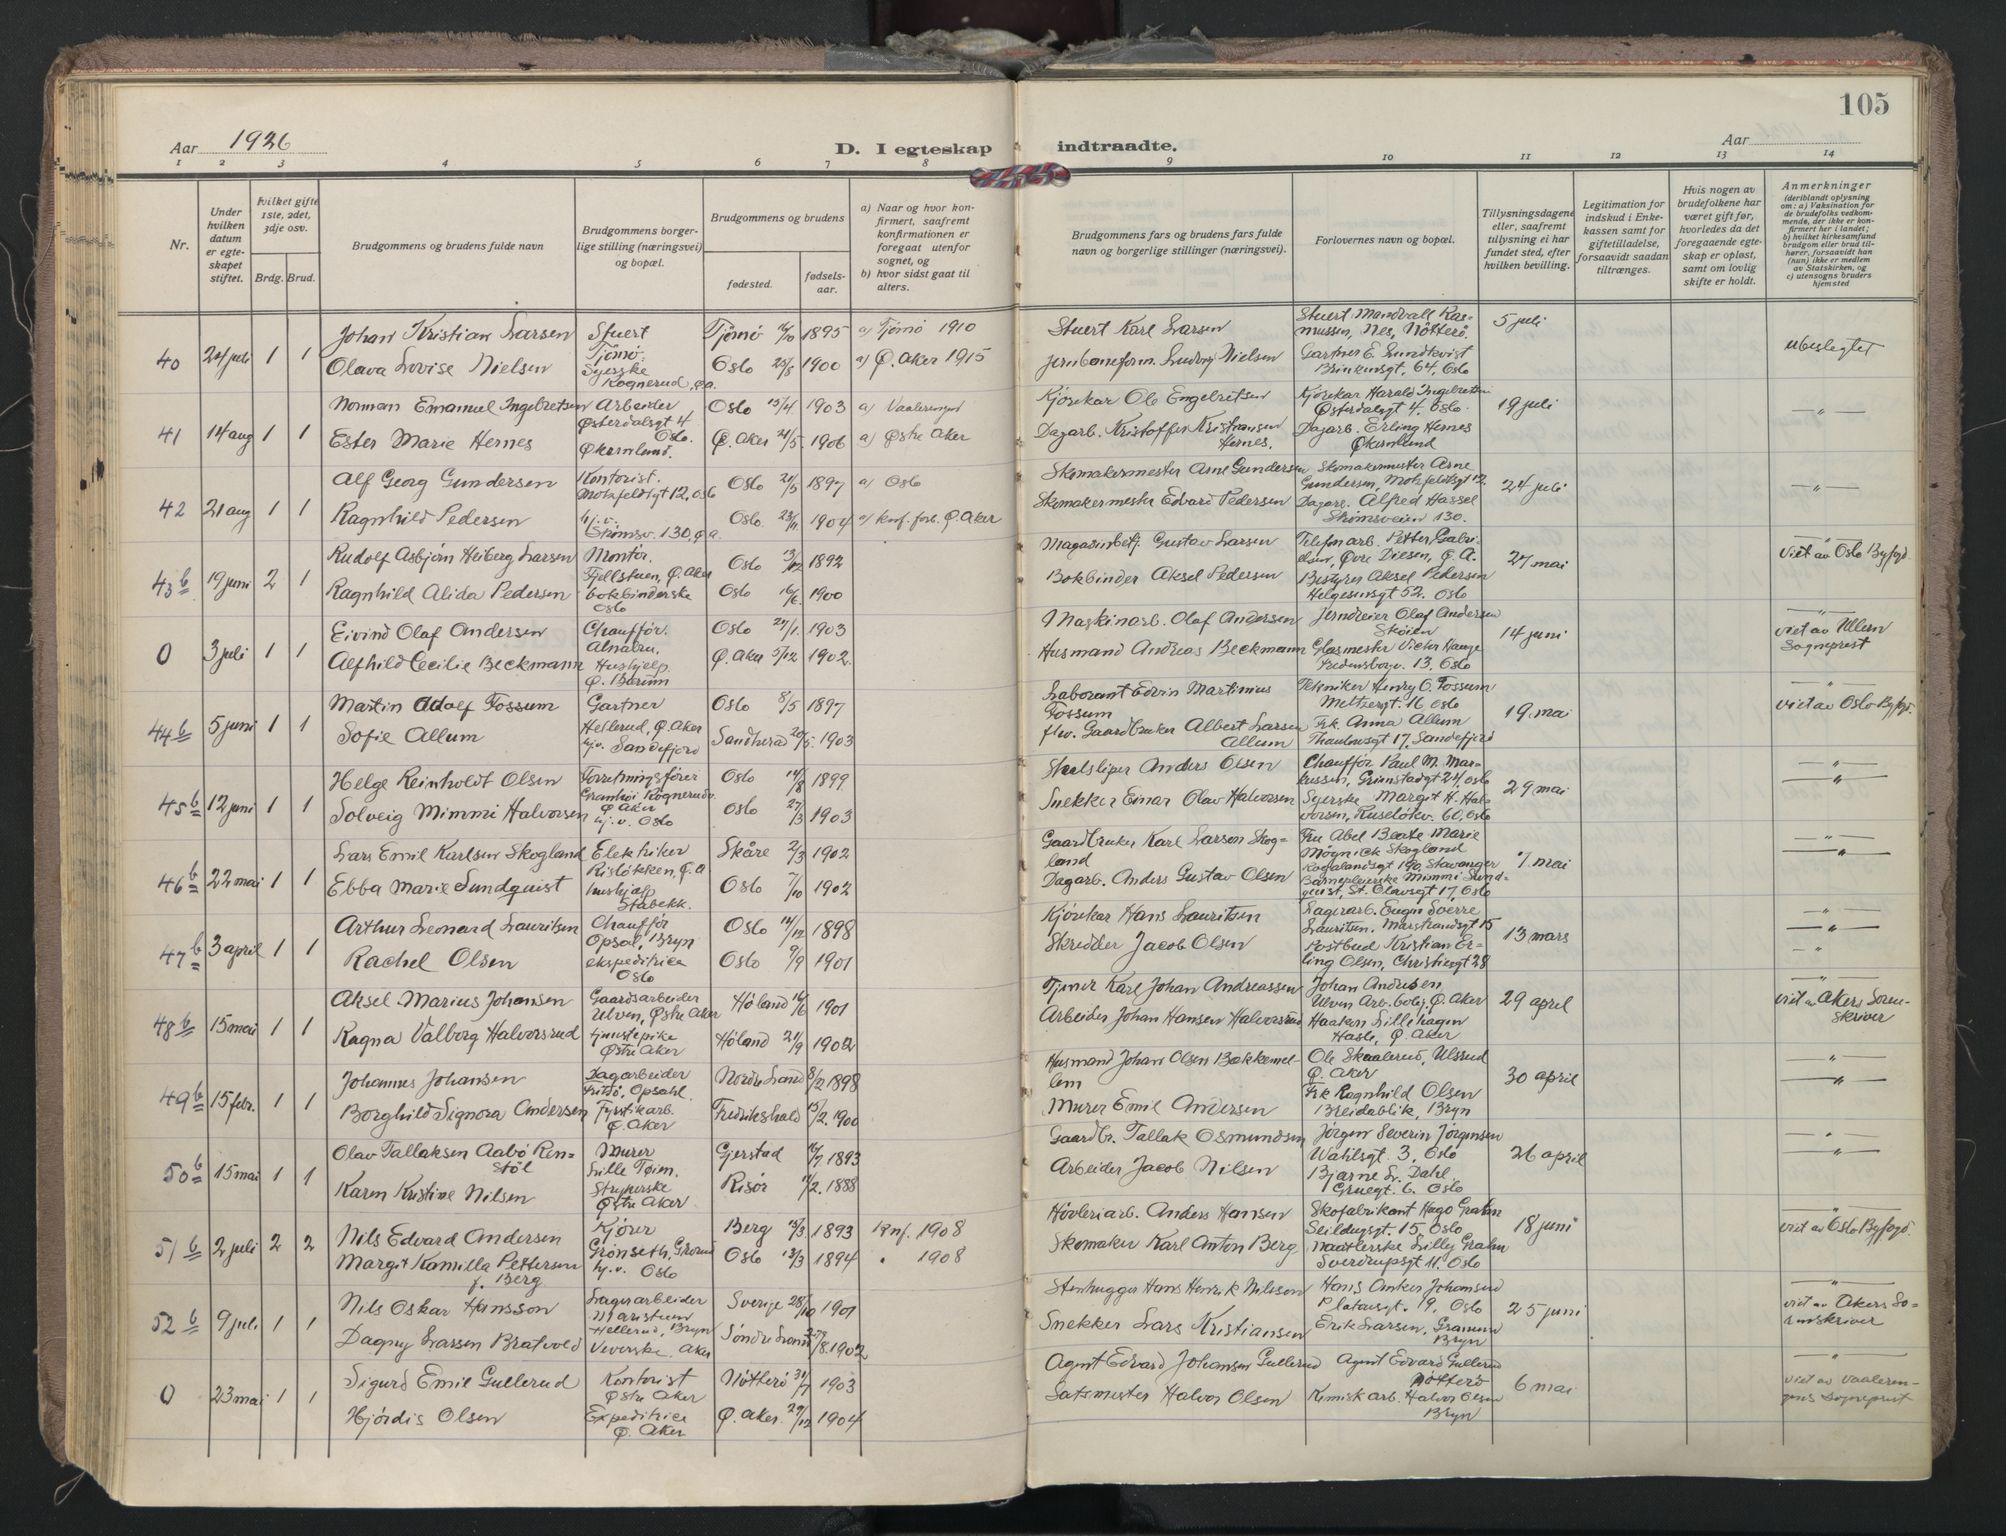 105
Aar 1926
D. I egteskap indtraadte.
Aar
1 2 3 4 5 6 7 8 9 10 11 12 13 14
Nr.
Under hvilken datum er egteskapet stiftet.
hvilket gifte 1ste, 2det, 3dje osv.
Brdg. Brud.
Brudgommens og brudens fulde navn
Brudgommens borgerlige stilling (næringsvei) og bopæl.
Brudgommens og brudens
fødested.
fødselsaar.
a) Naar og hvor konfirmert, saafremt konfirmationen er foregaat utenfor sognet, og
b) hvor sidst gaat til alters.
Brudgommens fars og brudens fars fulde navn og borgerlige stillinger (næringsvei).
Forlovernes navn og bopæl.
Tillysningsdagene eller, saafremt tillysning ei har fundet sted, efter hvilken bevilling.
Legitimation for indskud i Enkekassen samt for giftetilladelse, forsaavidt saadan tiltrænges.
Hvis nogen av brudefolkene har været gift før, hvorledes da det foregaaende egteskap er opløst, samt om lovlig skifte er holdt.
Anmerkninger (deriblandt oplysning om: a) Vaksination for de brudefolks vedkommende, der ikke er konfirmert her i landet; b) hvilket kirkesamfund brudgom eller brud tilhører, forsaavidt han (hun) ikke er medlem av Statskirken, og c) utensogns bruders hjemsted
40 24 juli 1 1
Johan Kristian Larsen Stuert Tjømø. Tjømø 1895 a) Tjømø 1910
Stuert Karl Larsen Stuert Mandvall Rasmussen, Nes, Nøtterø. 5 juli
Olava Lovise Nielsen Syerske Oslo 25/8 1900 a) Ø. Aker 1915
Jernbaneform. Ludvig Nielsen Gartner E. Lundkvist 64, Oslo ubeslegtet
41 14 aug 1 1
Norman Emanuel Ingebretsen Arbeider Østerdalsgt 4 Oslo. Oslo 13/4 1903 a) Vaalerengen
Kjørekar Ole Engelbretsen Kjørekar Harald Ingebretsen Østerdalsgt 4. Oslo. 19 juli —"—
Ester Marie Hernes Økernlund. Ø. Aker 21/5 1906 a) Østre Aker
Dagarb. Kristoffer Kristiansen Hernes. Dagarb. Erling Hernes Økernlund
42 21 aug 1 1
Alf Georg Gundersen Kontorist. Mohfeldtsgt 12, Oslo Oslo 21/5 1897 a) Oslo
Skomakermester Arne Gundersen Skomakermester Arne Gundersen, Mohfeldtsgt 12. 24 juli —"—
Ragnhild Pedersen hj.v. Strømsv. 130, Ø.a. Oslo. 23/11 1904 a) konf. forb. Ø. Aker
Skomakermester Edvard Pedersen Dagarb. Alfred Hassel Strømsveien 130.
43b 19 juni 2 1
Rudolf Asbjørn Heiberg Larsen Montør. Fjellstuen, Ø. Aker Oslo 13/12 1892
Magasinbetj. Gustav Larsen Telefonarb. Petter Gabrielsen, Øvre Diesen, Ø. A. 27 mai viet av Oslo Byfogd
Ragnhild Alida Pedersen bokbinderske Oslo Oslo 16/6 1900
Bokbinder Aksel Pedersen Bestyrer Aksel Pedersen Helgesensgt 52. Oslo
0 3 juli 1 1
Eivind Olaf Andersen Chauffør. Alnabru. Oslo 27/1. 1903
Maskinarb. Olaf Andersen Jerndreier Olaf Andersen Skøien 14 juni —"— viet av Ullern Sogneprest
Alfhild Cecilie Beckmann Hushjelp. Ø. Bærum Ø. Aker 5/12 1902.
Husmand Andreas Beckmann Glasmester Victor Hauge Fredensborgv. 13, Oslo
44b 5 juni 1 1
Martin Adolf Fossum Gartner Hellerud, Ø. Aker Oslo 8/5 1897
Laborant Edvin Martinius Fossum Tekniker Henry O. Fossum Meltzersgt. 16 Oslo 19. mai —"— viet av Oslo Byfogd.
Sofie Allum hj.v. Sandefjord Sandherad 20/5. 1903
fhv. Gaardbruker Albert Larsen Allum Frk. Anna Allum Thaulowsgt 17, Sandefjord
45b 12 juni 1 1
Helge Reinholdt Olsen Forretningsfører Ø. Aker Oslo 14/8 1899
Anders Olsen Chauffør Paul M. Markussen, Grimstadgt 24, Oslo 29 mai —"— —"—
Solveig Mimmi Halvorsen hj.v. Oslo Oslo 27/3 1903
Snekker Einar Olav Halvorsen Syerske Margit H. Halvorsen, Ruseløkv. 60, Oslo
46b 22 mai 1 1
Lars Emil Karlsen Skogland Elektriker Risløkken, Ø. A Skåre 2/3 1902
Gaardbruker Karl Larson Skogland Fru Abel Beate Marie Skogland Stavanger 7. mai —"— —"—
Ebba Marie Sundquist hushjelp Stabekk. Oslo 7/10 1902
Dagarb. Anders Gustav Olsen Barnepleierske Mimmi Sundquist, St. Olavsgt 17, Oslo
47b 3 april 1 1
Arthur Leonard Lauritsen Chauffør Opsal, Bryn Oslo 14/12 1898
Kjørekar Hans Lauritsen Lagerarb. Eugen Sverre Lauritsen. Marstrandsgt 15 13 mars —"— —"—
Rachel Olsen ekspeditrice Oslo Oslo 9/9 1901
Skredder Jacob Olsen Postbud Kristian Erling Olsen, Christiesgt 28 —"—
48b 15 mai 1 1
Aksel Marius Johansen Gaardsarbeider Ulven, Østre Aker Høland 16/6 1901
Tjener Karl Johan Andreassen Johan Andresen Ulven Arb. bolig, Ø. Aker 29 april —"— viet av Akers Sorenskriver
Ragna Valborg Halvorsrud tjenestepike Østre Aker Høland 21/9 1902
Arbeider Johan Hansen Halvorsrud Haakon Lillehagen Hasle, Ø. Aker
49b 15 febr. 1 1
Johannes Johansen Dagarbeider Opsahl. Nordre Land 8/2 1898
Husmand Johans Olsen Bakkemellem Ole Skaalerud, Ulsrud Ø. Aker 30 april —"— —"—
Borghild Signora Andersen Ø. Aker Fredrikshald 15/2. 1900
Murer Emil Andersen Frk Ragnhild Olsen Breidablik, Bryn
50b 15 mai 1 1
Olav Tallaksen Aabø Renstøl Murer Lille Tøien. Gjerstad 16/7 1893
Gaardbr. Tallak Osmundsen Jørgen Severin Jørgensen Wahlsgt. 3, Oslo 26 april —"— —"—
Karen Kristine Nilsen Strykerske Østre Aker Risør 11/2. 1888
Arbeider Jacob Nilsen Bjarne Lr. Dahl. Gruegt. 6. Oslo
51b 2 juli 2 2
Nils Edvard Andersen Kjører Grønseth, Grorud Berg 13/3 1893 konf. 1908
Høvleriarb. Anders Hansen Skofabrikant Hago Grahn Seildugsgt. 15, Oslo 18 juni viet av Oslo Byfogd.
Margit Kamilla Pettersen f. Berg hj.v. Oslo Oslo 13/3 1894 " 1908
Skomaker Karl Anton Berg Naatlerske Lilly Grahn Sverdrupsgt 11. Oslo
52b 9 juli 1 1
Nils Oskar Hansson Lagerarbeider Hellerud, Bryn Sverige 28/10 1901
Stenhugger Hans Henrik Nilsson Hans Anker Johansen Platousgt. 19, Oslo 25 juni —"— viet av Akers Sorenskriver
Dagny Larsen Bratvold Veverske. Aker Søndre Land 1902
Snekker Lars Kristiansen Erik Larsen, Bryn
0 23 mai 1 1
Sigurd Emil Gullerud Kontorist Østre Aker Nøtterø 31/7 1903
Agent Edvard Johansen Gullerud Agent Edvard Gullerud Nøtterø 6 mai —"— viet av Vaalerengens Sogneprest
Hjørdis Olsen Expeditrice Ø. Aker Ø. Aker. 29/12 1904
Satsmester Halvor Olsen Kemisk arb. Halvor Olsen Bryn